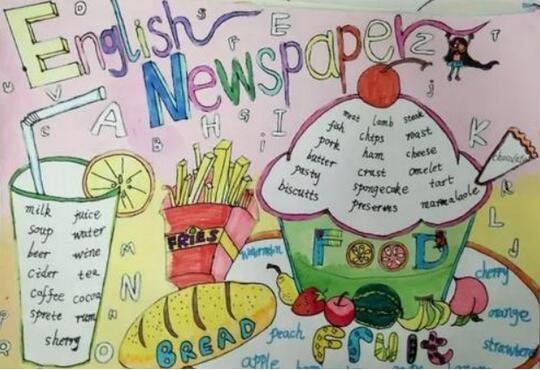 English
Newspaper
milk juice
soup water
beer wine
cider tea
coffee cocoa
sprete rum
sherry
FRIES
BREAD
meat lamb steak
fish chips roast
pork ham cheese
butter crust omelet
pasty spongecake tart
biscutts preserves marmalaole
chocolate
FOOD
watermelon
cherry
orange
strawberr
peach
apple
Fruit